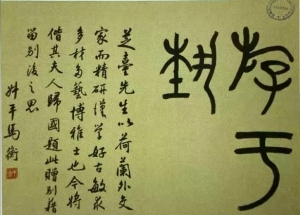 斿于
埶
芝臺先生以荷蘭外交
家而精研漢學好古敏求
多材多藝博雅士也今將
偕其夫人歸國題此贈別藉
留別後之思
叔平馬衡